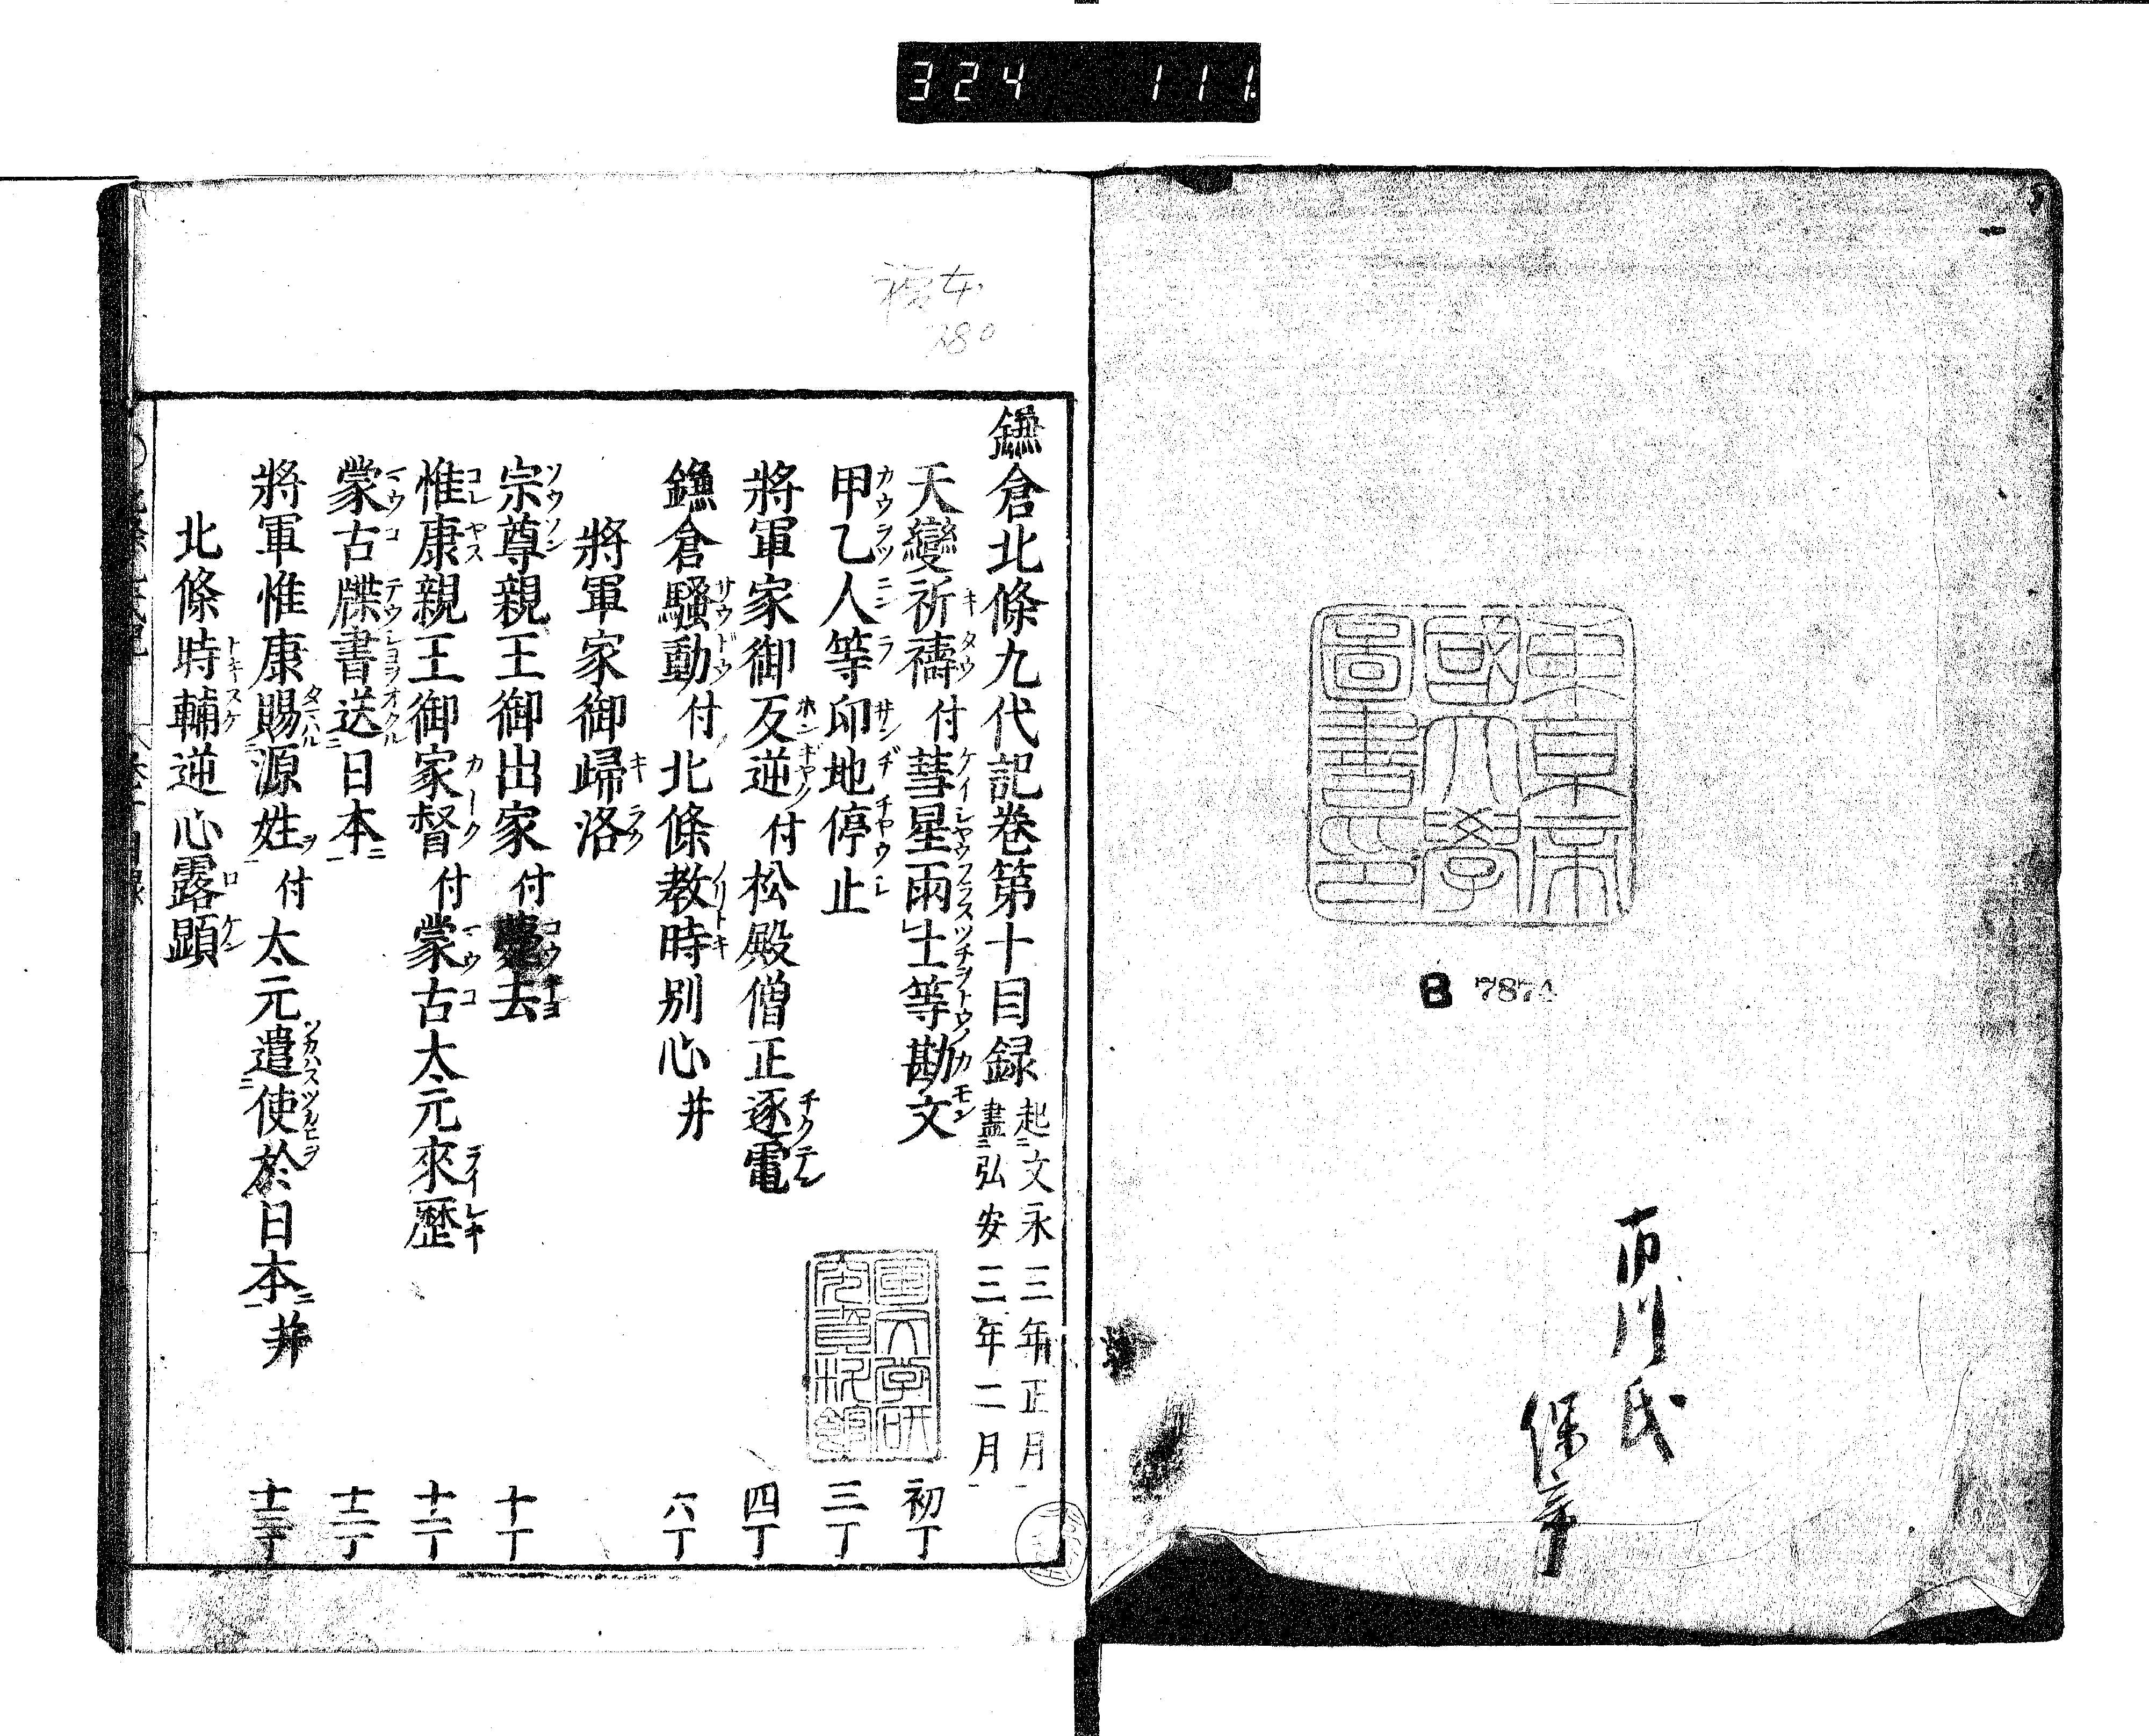 324 111
東京帝
國大學
圖書印
B 7874
市川氏
保章
280
鎌倉北條九代記卷第十目録 起二文永三年正月一 盡二弘安三年二月一
天變祈禱付彗星雨土等勘文 初丁
甲乙人等印地停止 三丁
將軍家御反逆付松殿僧正逐電 四丁
鎌倉騒動付北條教時別心并 六丁
將軍家御歸洛
宗尊親王御出家付薨去 十丁
惟康親王御家督付蒙古太元來歴 十一丁
蒙古牒書送日本 十二丁
將軍惟康賜源姓付太元遣使於日本并 十三丁
北條時輔逆心露顕
国文学研
究資料館